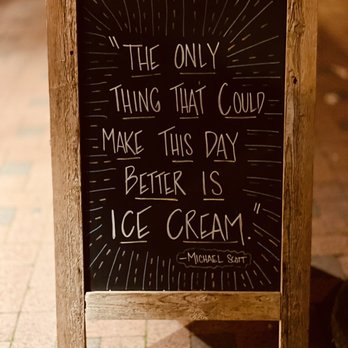 "THE ONLY
THING THAT COULD
MAKE THIS DAY
BETTER IS
ICE CREAM."
-MICHAEL SCOTT